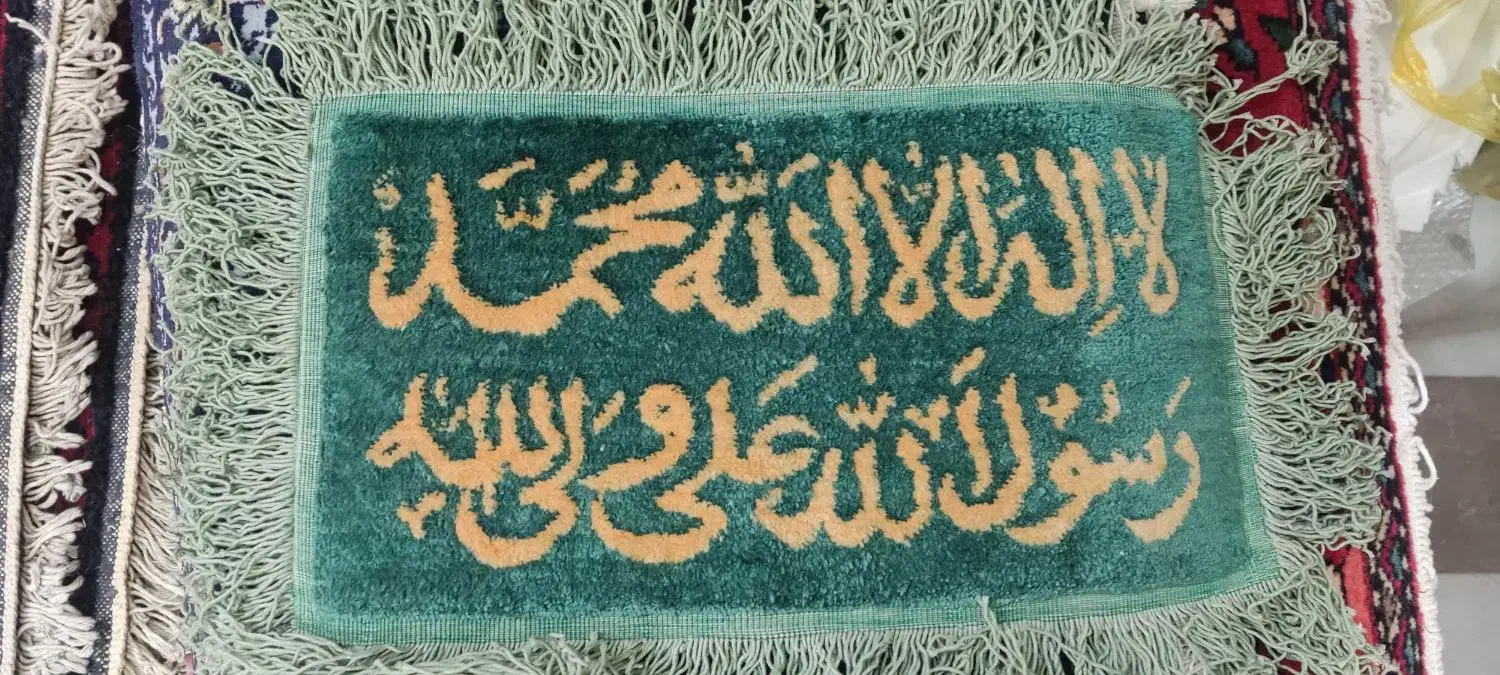 لَا إِلٰهَ إِلَّا اللّٰه مُحَمَّدٌ
رَسُولُ اللّٰه عَلِی وَلِیُّ اللّٰهِ